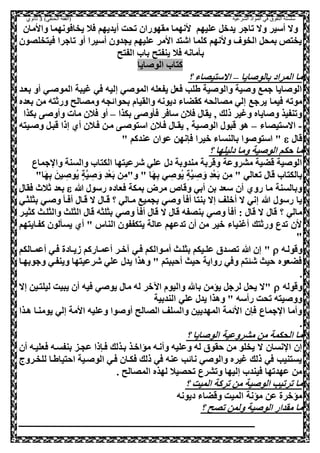 سلسلة التفوق في المواد الشرعية (الفقه الحنفي) 3 ثانوي
ولا أسير ولا تاجر يدخل عليهم لأنهما مقهوران تحت أيديهم فلا يخافونهما والأمان
يختص بمحل الخوف ولأنهم كلما اشتد الأمر عليهم يجدون أسيرا أو تاجرا فيتخلصون
بأمانه فلا ينفتح باب الفتح
كتاب الوصايا
ما المراد بالوصايا – الاستيصاء ؟
الوصايا جمع وصية والوصية طلب فعل يفعله الموصي إليه في غيبة الموصي أو بعد
موته فيما يرجع إلي مصالحه كقضاء ديونه والقيام بحوانجه ومصالح ورثته من بعده
وتنفيذ وصاياه وغير ذلك , يقال فلان سافر فأوصى بكذا – أو فلان مات وأوصى بكذا
- الاستيصاء – هو قبول الوصية , يقال فلان استوصى من فلان أي إذا قبل وصيته
قال ε " استوصوا بالنساء خيرا فإنهن عوان عندكم "
ما حكم الوصية وما دليلها ؟
الوصية قضية مشروعة وقربة مندوبة دل علي شرعيتها الكتاب والسنة والإجماع
بالكتاب قال تعالي " مِن بَعْدِ وَصِيَّةٍ يُوصِي بِهَا " و"مِن بَعْدِ وَصِيَّةٍ يُوصِينَ بِهَا"
وبالسنة ما روي أن سعد بن أبي وقاص مرض بمكة فعاده رسول الله ε بعد ثلاث فقال
يا رسول الله إني لا أخلف إلا بنتا أفأ وصي بجميع مالي ؟ قال لا قال أفأ وصي بثلثي
مالي ؟ قال لا قال : أفأ وصي بنصفه قال لا قال أفأ وصي بثلثه قال الثلث والثلث كثير
لأن تدع ورثتك أغنياء خير من أن تدعهم عالة يتكففون الناس " أي يسألون كفايتهم
"
وقوله ρ " إن الله تصدق عليكم بثلث أموالكم في آخر أعماركم زيادة في أعمالكم
فضعوه حيث شئتم وفي رواية حيث أحببتم " وهذا يدل علي شرعيتها وينفي وجوبها
.
وقوله ρ "لا يحل لرجل يؤمن بالله واليوم الآخر له مال يوصي فيه أن يبيت ليلتين إلا
ووصيته تحت رأسه " وهذا يدل علي الندبية
وأما الإجماع فإن الأئمة المهديين والسلف الصالح أوصوا وعليه الأمة إلي يومنا هذا
.
ما الحكمة من مشروعية الوصايا ؟
إن الإنسان لا يخلو من حقوق له وعليه وأنه مؤاخذ بذلك فإذا عجز بنفسه فعليه أن
يستنيب في ذلك غيره والوصي نائب عنه في ذلك فكان في الوصية احتياطا للخروج
من عهدتها فيندب إليها وتشرع تحصيلا لهذه المصالح .
ما ترتيب الوصية من تركة الميت ؟
مؤخرة عن مؤنة الميت وقضاء ديونه
ما مقدار الوصية ولمن تصح ؟